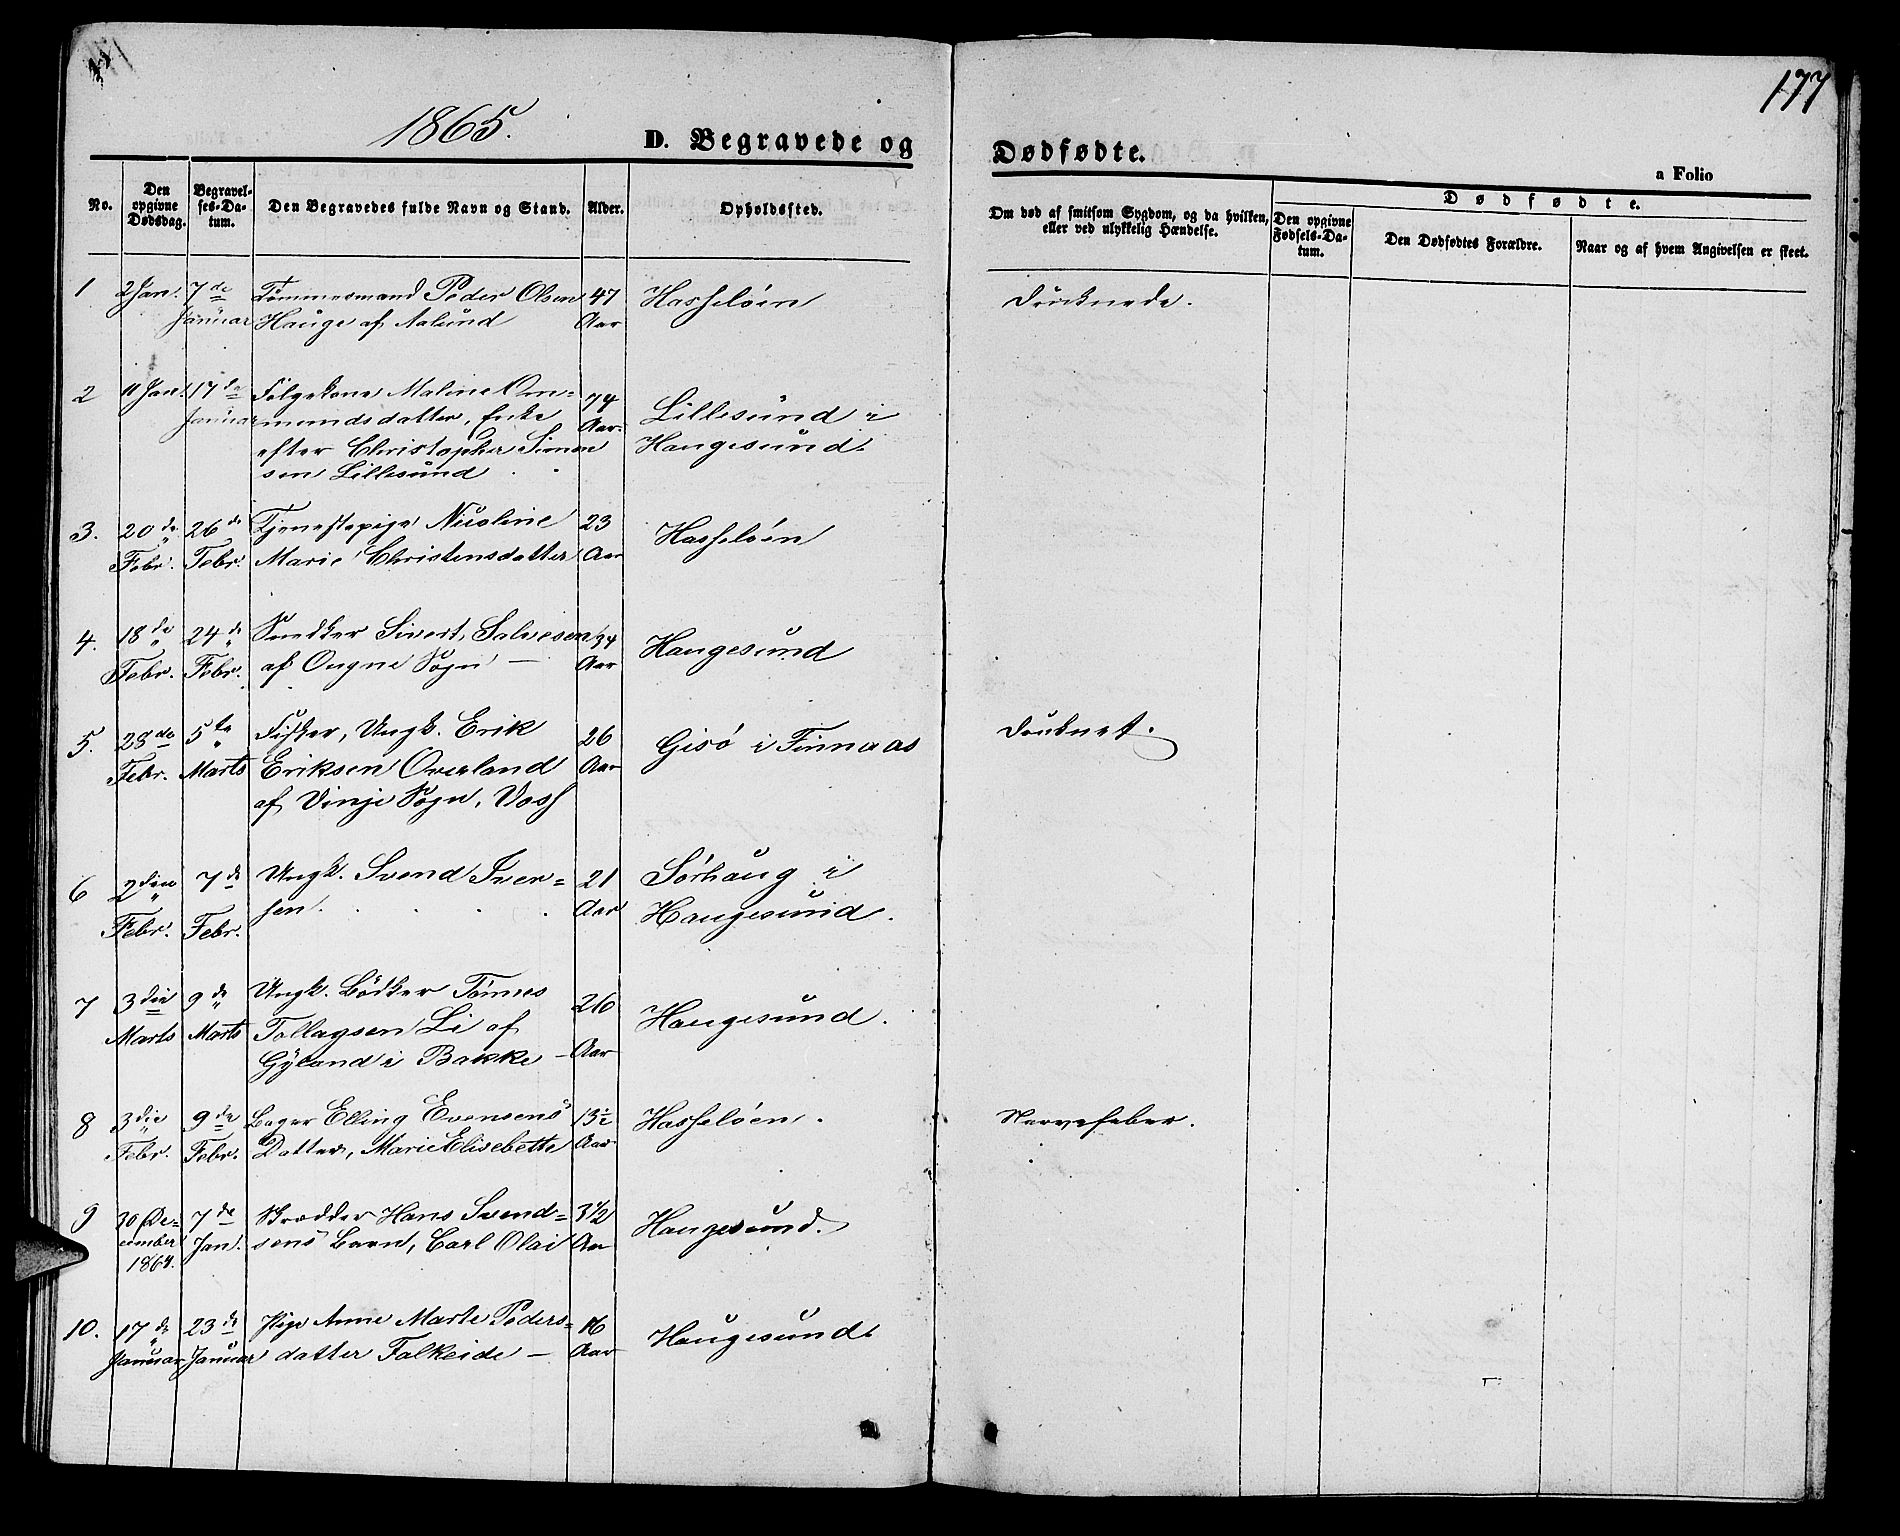 177
1865.
D. Begravede og Dødfødte.
a Folio
No.
Den opgivne Dødsdag.
Begravelses-Datum.
Den Begravedes fulde Navn og Stand.
Alder.
Opholdssted.
Om død af smitsom Sygdom, og da hvilken, eller ved ulykkelig Hændelse.
Dødfødte.
Den opgivne Fødsels-Datum.
Den Dødfødtes Forældre.
Naar og af hvem Angivelsen er skeet.
1 2 Jan. 7de Tømmermand Peder Olsen 47 Hasseløen Druknede.
Januar Hauge af Aalund Aar
2 11 Jan. 17de Følgekone Maline Om= 74 Lillesund i
Januar mundsdatter, Enke Aar. Haugesund.
efter Christopher Simon
sen Lillesund
3. 20de 26de Tjenestepige Nicoline 23 Hasseløen
Febr. Febr. Marie Christensdatter Aar
4. 18de 24de Snedker Sivert Salvesen 34 Haugesund
Febr. Febr. af Ougne Sogn — Aar
5. 28de 5te Fisker, Ungk. Erik 26 Gisø i Finnaas Druknet.
Febr. Marts Eriksen Overland Aar
af Vinje Sogn, Voss
6 2den 7de Ungk. Svend Iver= 21 Sørhaug i
Febr. Febr. sen. Aar Haugesund.
7 3die 9de Ungk. Bødker Tønnes 26 Haugesund.
Marts Marts Tollagsen Li af
Gyland i Bakke — Aar
8 3die 9de Bager Elling Evensens 13½ Hasseløen. Nervefeber.
Febr. Febr. Datter, Marie Elisebette Aar
9 30 De= 7de Skrædder Hans Svend= 3½ Haugesund.
cember Jan. sens Barn, Carl Olai Aar
1864.
10. 17de 23de Pige Anne Marte Peders= 16 Haugesund.
Januar Januar datter Falkeide — Aar